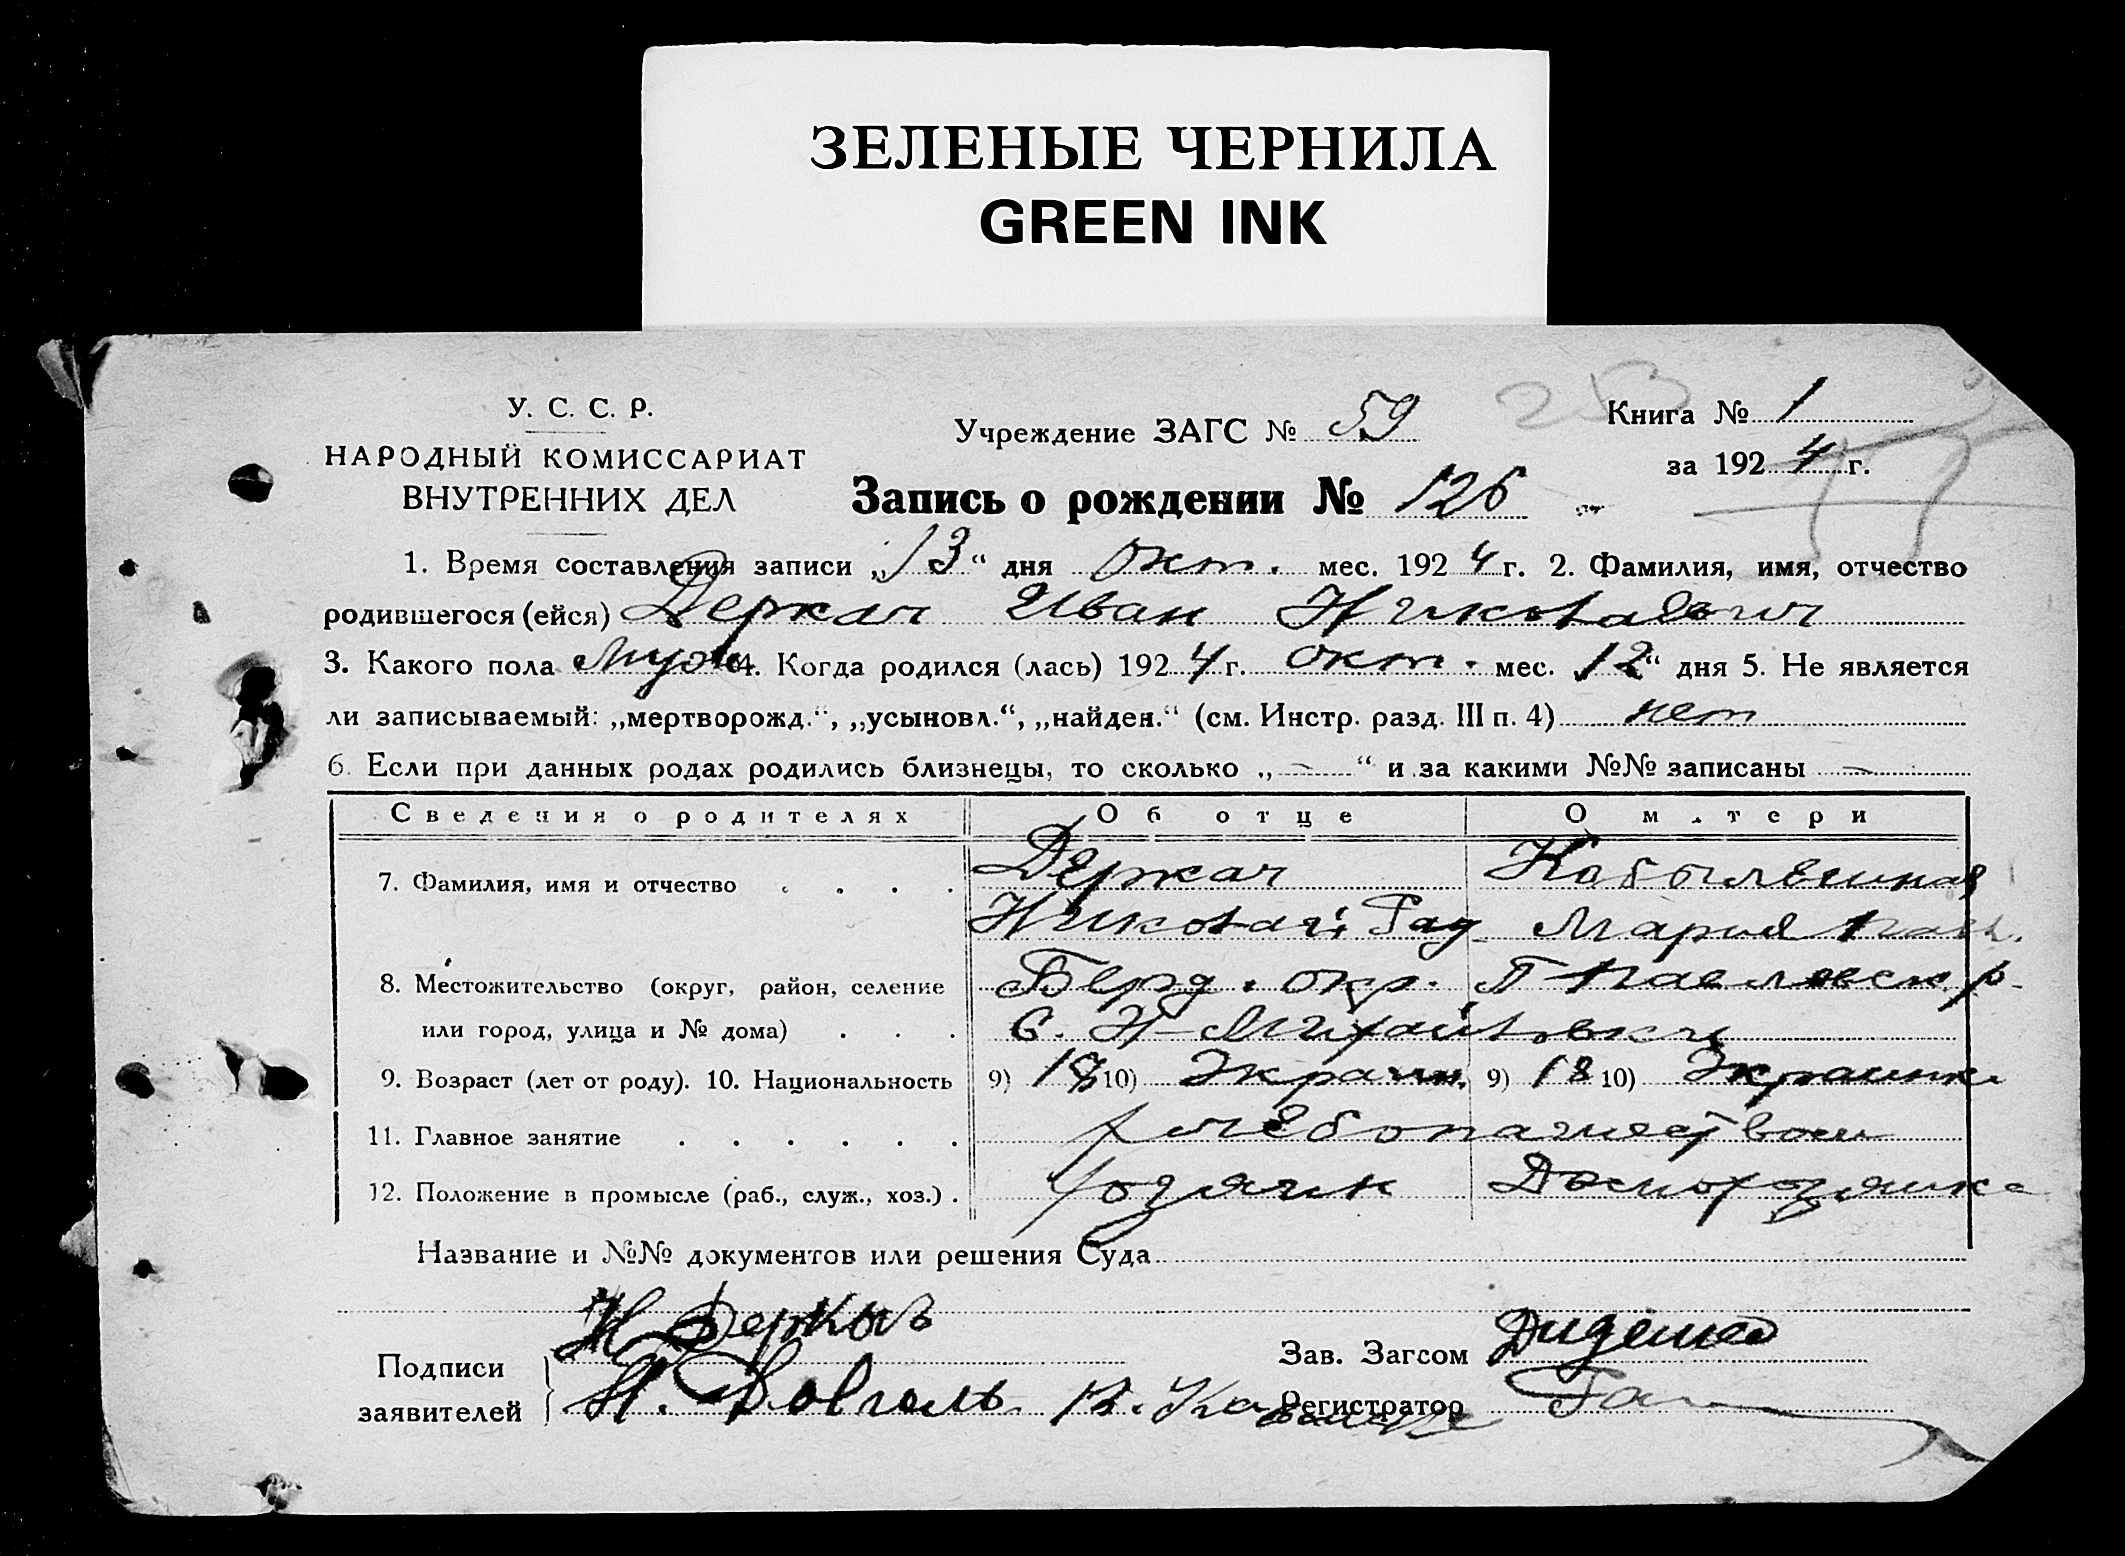 ЗЕЛЕНЫЕ ЧЕРНИЛА
GREEN INK
253
У. С. С. Р.
НАРОДНЫЙ КОМИССАРИАТ
ВНУТРЕННИХ ДЕЛ
Учреждение ЗАГС № 59
Книга № 1
за 1924 г.
Запись о рождении № 126
1. Время составления записи „13“ дня окт. мес. 1924 г. 2. Фамилия, имя, отчество
родившегося (ейся) Деркач Иван Николаевич
3. Какого пола муж 4. Когда родился (лась) 1924 г. окт. мес. „12“ дня 5. Не является
ли записываемый: „мертворожд.“, „усыновл.“, „найден.“ (см. Инстр. разд. III п. 4) нет
6. Если при данных родах родились близнецы, то сколько „—“ и за какими №№ записаны —
Сведения о родителях Об отце О матери
7. Фамилия, имя и отчество Деркач Кобылянская
Николай Мария
8. Местожительство (округ, район, селение Берд. окр. П Павловск р
или город, улица и № дома) с. Н-Михайловки
9. Возраст (лет от роду). 10. Национальность 9) 18 10) Украин. 9) 18 10) Украинка
11. Главное занятие хлебопашеством
12. Положение в промысле (раб., служ., хоз.) хозяин Домохозяйка
Название и №№ документов или решения Суда
Н Деркач
Подписи
заявителей
Н. Довгаль
Зав. Загсом Диденко
Регистратор